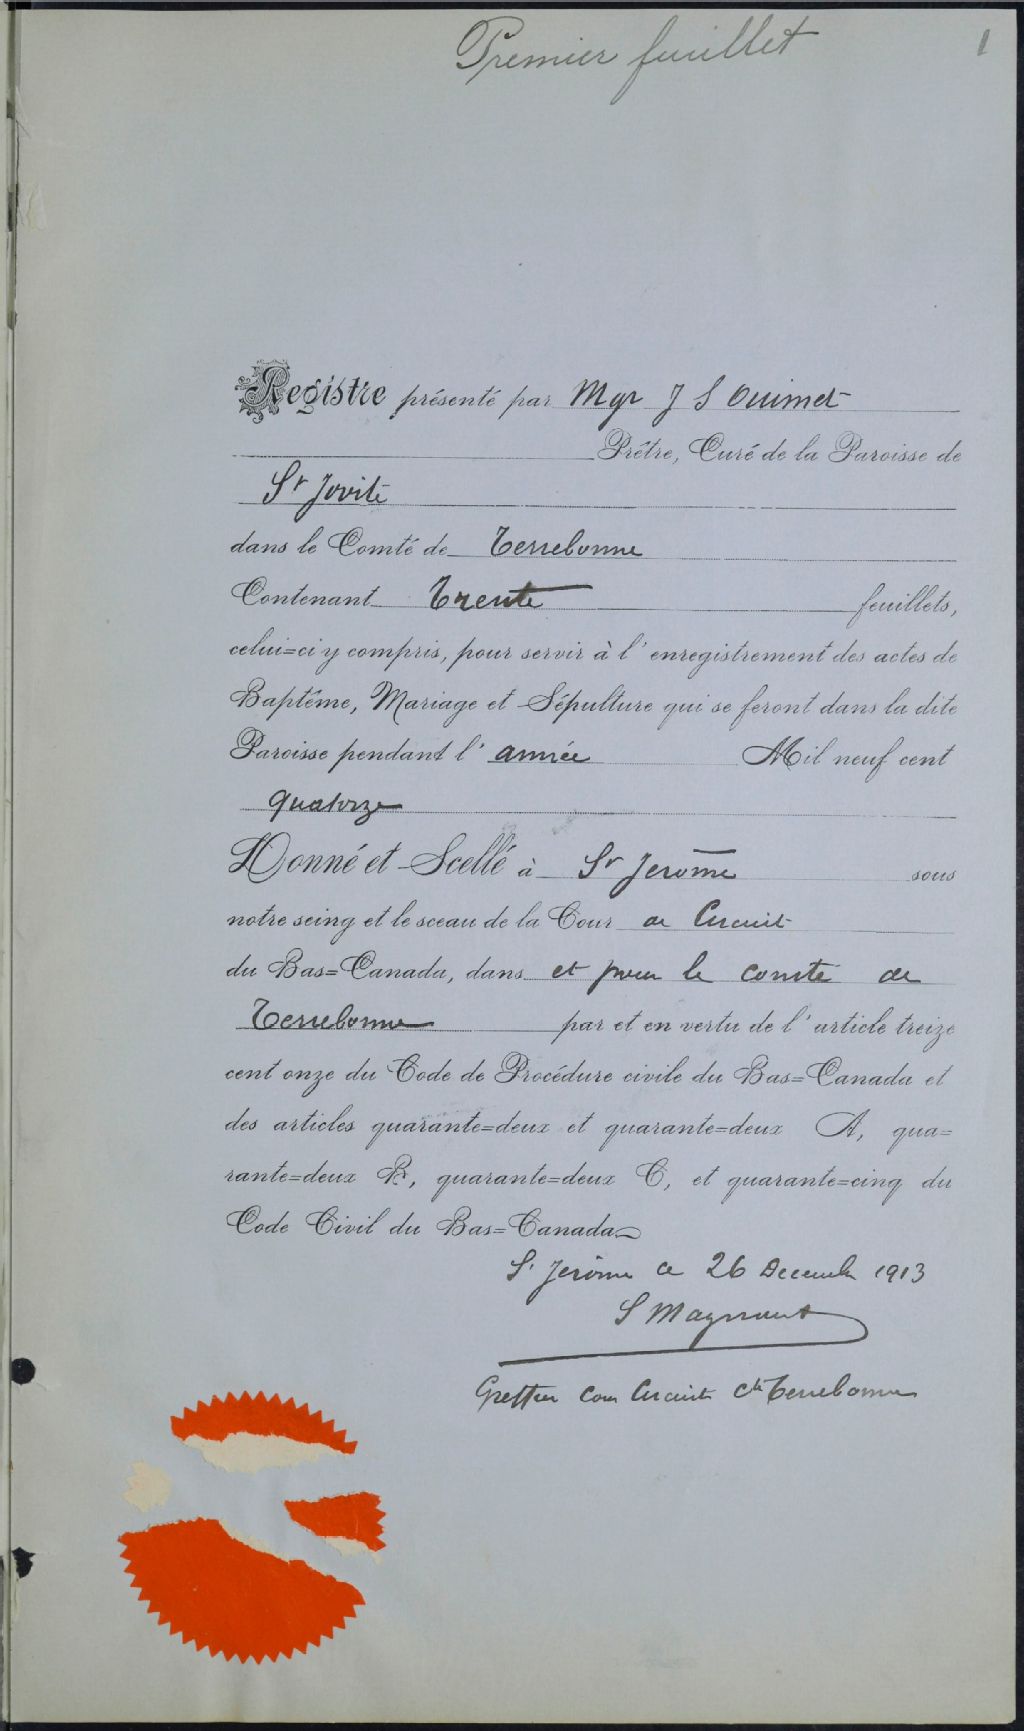 Premier feuillet
1
Registre présenté par Mgr J S Ouimet
Prêtre, Curé de la Paroisse de
St Jovite
dans le Comté de Terrebonne
Contenant Trente feuillets,
celui=ci y compris, pour servir à l'enregistrement des actes de
Baptême, Mariage et Sépulture qui se feront dans la dite
Paroisse pendant l'année Mil neuf cent
quatorze
Donné et Scellé à St Jerome sous
notre seing et le sceau de la Cour de Circuit
du Bas=Canada, dans et pour le comté de
Terrebonne par et en vertu de l'article treize
cent onze du Code de Procédure civile du Bas=Canada et
des articles quarante=deux et quarante=deux A, qua=
rante=deux B, quarante=deux C, et quarante=cinq du
Code Civil du Bas=Canada
St Jerôme ce 26 Decembre 1913
S Magnant
Greffier Cour Circuit Cté Terrebonne